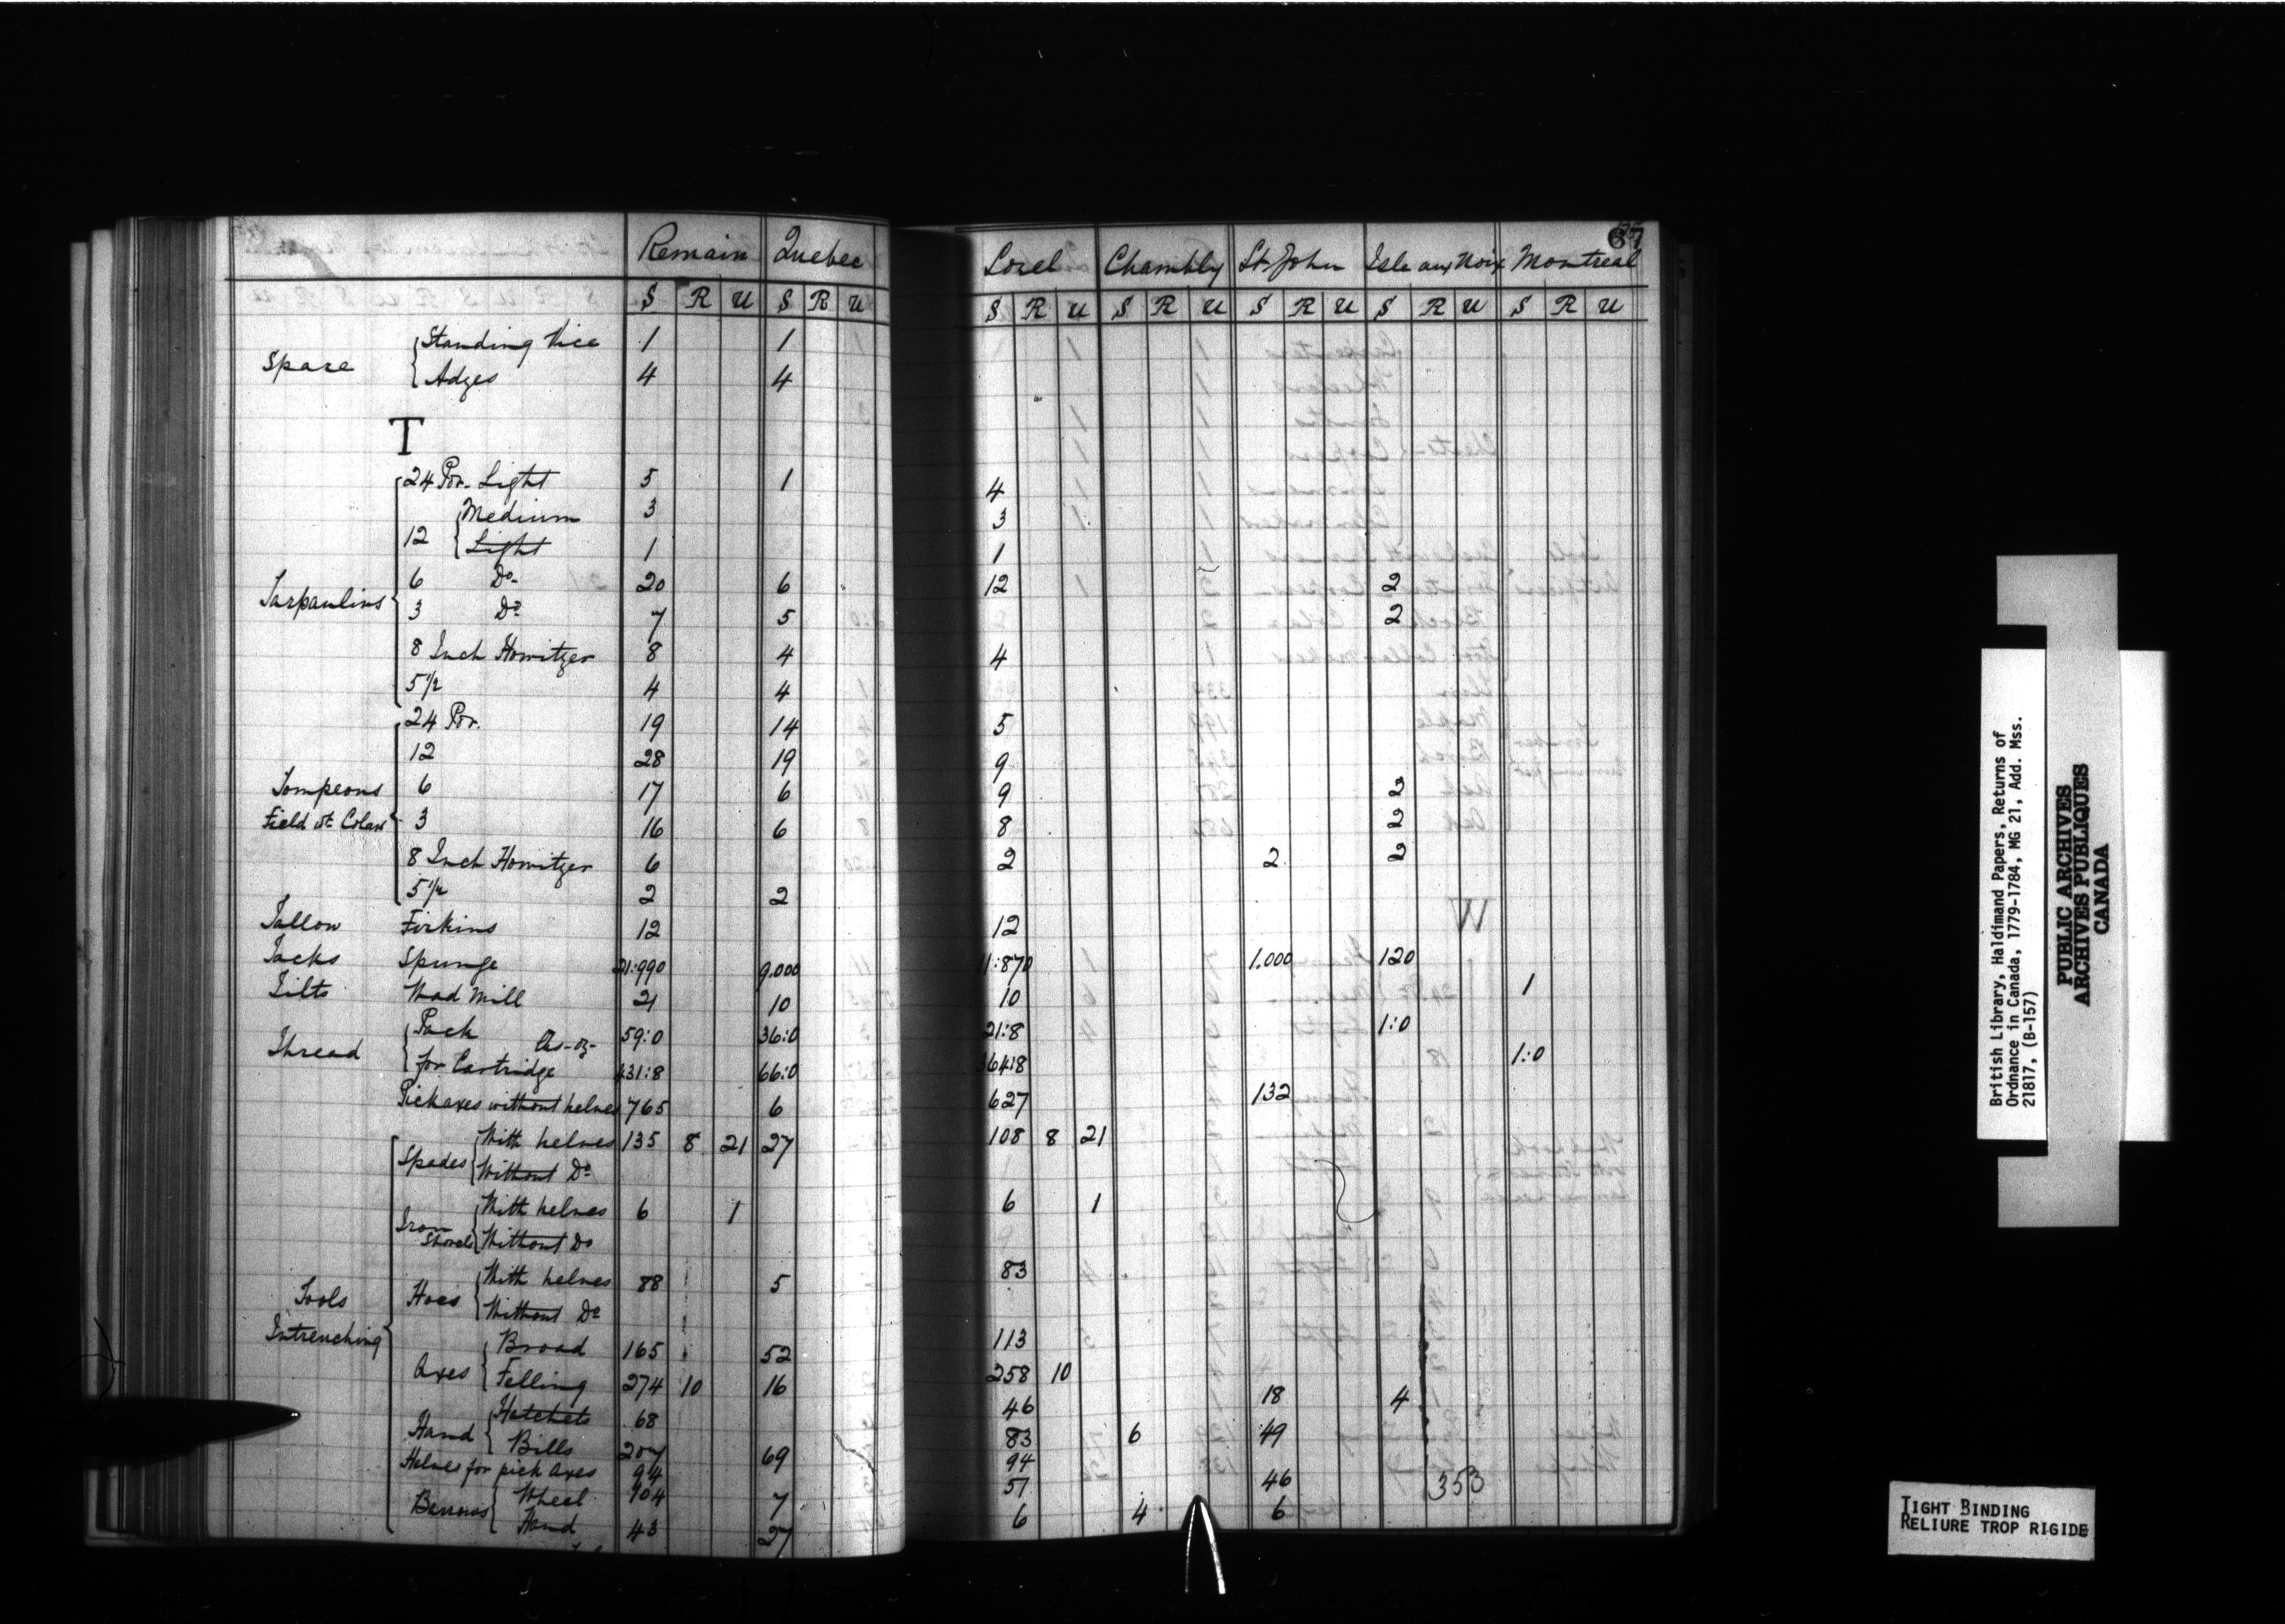 67
Remain Quebec Sorel Chambly St. John Isle aux Noix Montreal
S R U S R U S R U S R U S R U S R U S R U
Spare Standing Vice 1 1
Adzes 4 4
T
Tarpaulins 24 Por. Light 5 1 4
12 Medium 3 3
Light 1 1
6 Do 20 6 12 2
3 Do 7 5 2
8 Inch Howitzer 8 4 4
5 1/2 4 4
24 Por. 19 14 5
12 28 19 9
Tompeons 6 17 6 9 2
Field wt. Colars 3 16 6 8 2
8 Inch Howitzer 6 2 2 2
5 1/2 2 2
Tallow Firkins 12 12
Tacks Spunge 21:990 9.000 11:870 1.000 120
Tilts Wad Mill 21 10 10 1
Thread Pack 59:0 36:0 21:8 1:0
for Cartridge 431:8 66:0 364:8 1:0
Pickaxes without helves 765 6 627 132
Spades With helves 135 8 21 27 108 8 21
Without Do
Iron Shovels With helves 6 1 6 1
Without Do
Tools Hoes With helves 88 5 83
Without Do
Intrenching
Axes Broad 165 52 113
Felling 274 10 16 258 10
Hand Hatchets 68 46 18 4
Bills 207 69 83 6 49
Helves for pick axes 94 94
Barrows Wheel 104 7 51 46
Hand 43 27 6 4 6
353
British Library, Haldimand Papers, Returns of
Ordnance in Canada, 1779-1784, MG 21, Add. Mss.
21817, (B-157)
PUBLIC ARCHIVES
ARCHIVES PUBLIQUES
CANADA
TIGHT BINDING
RELIURE TROP RIGIDE